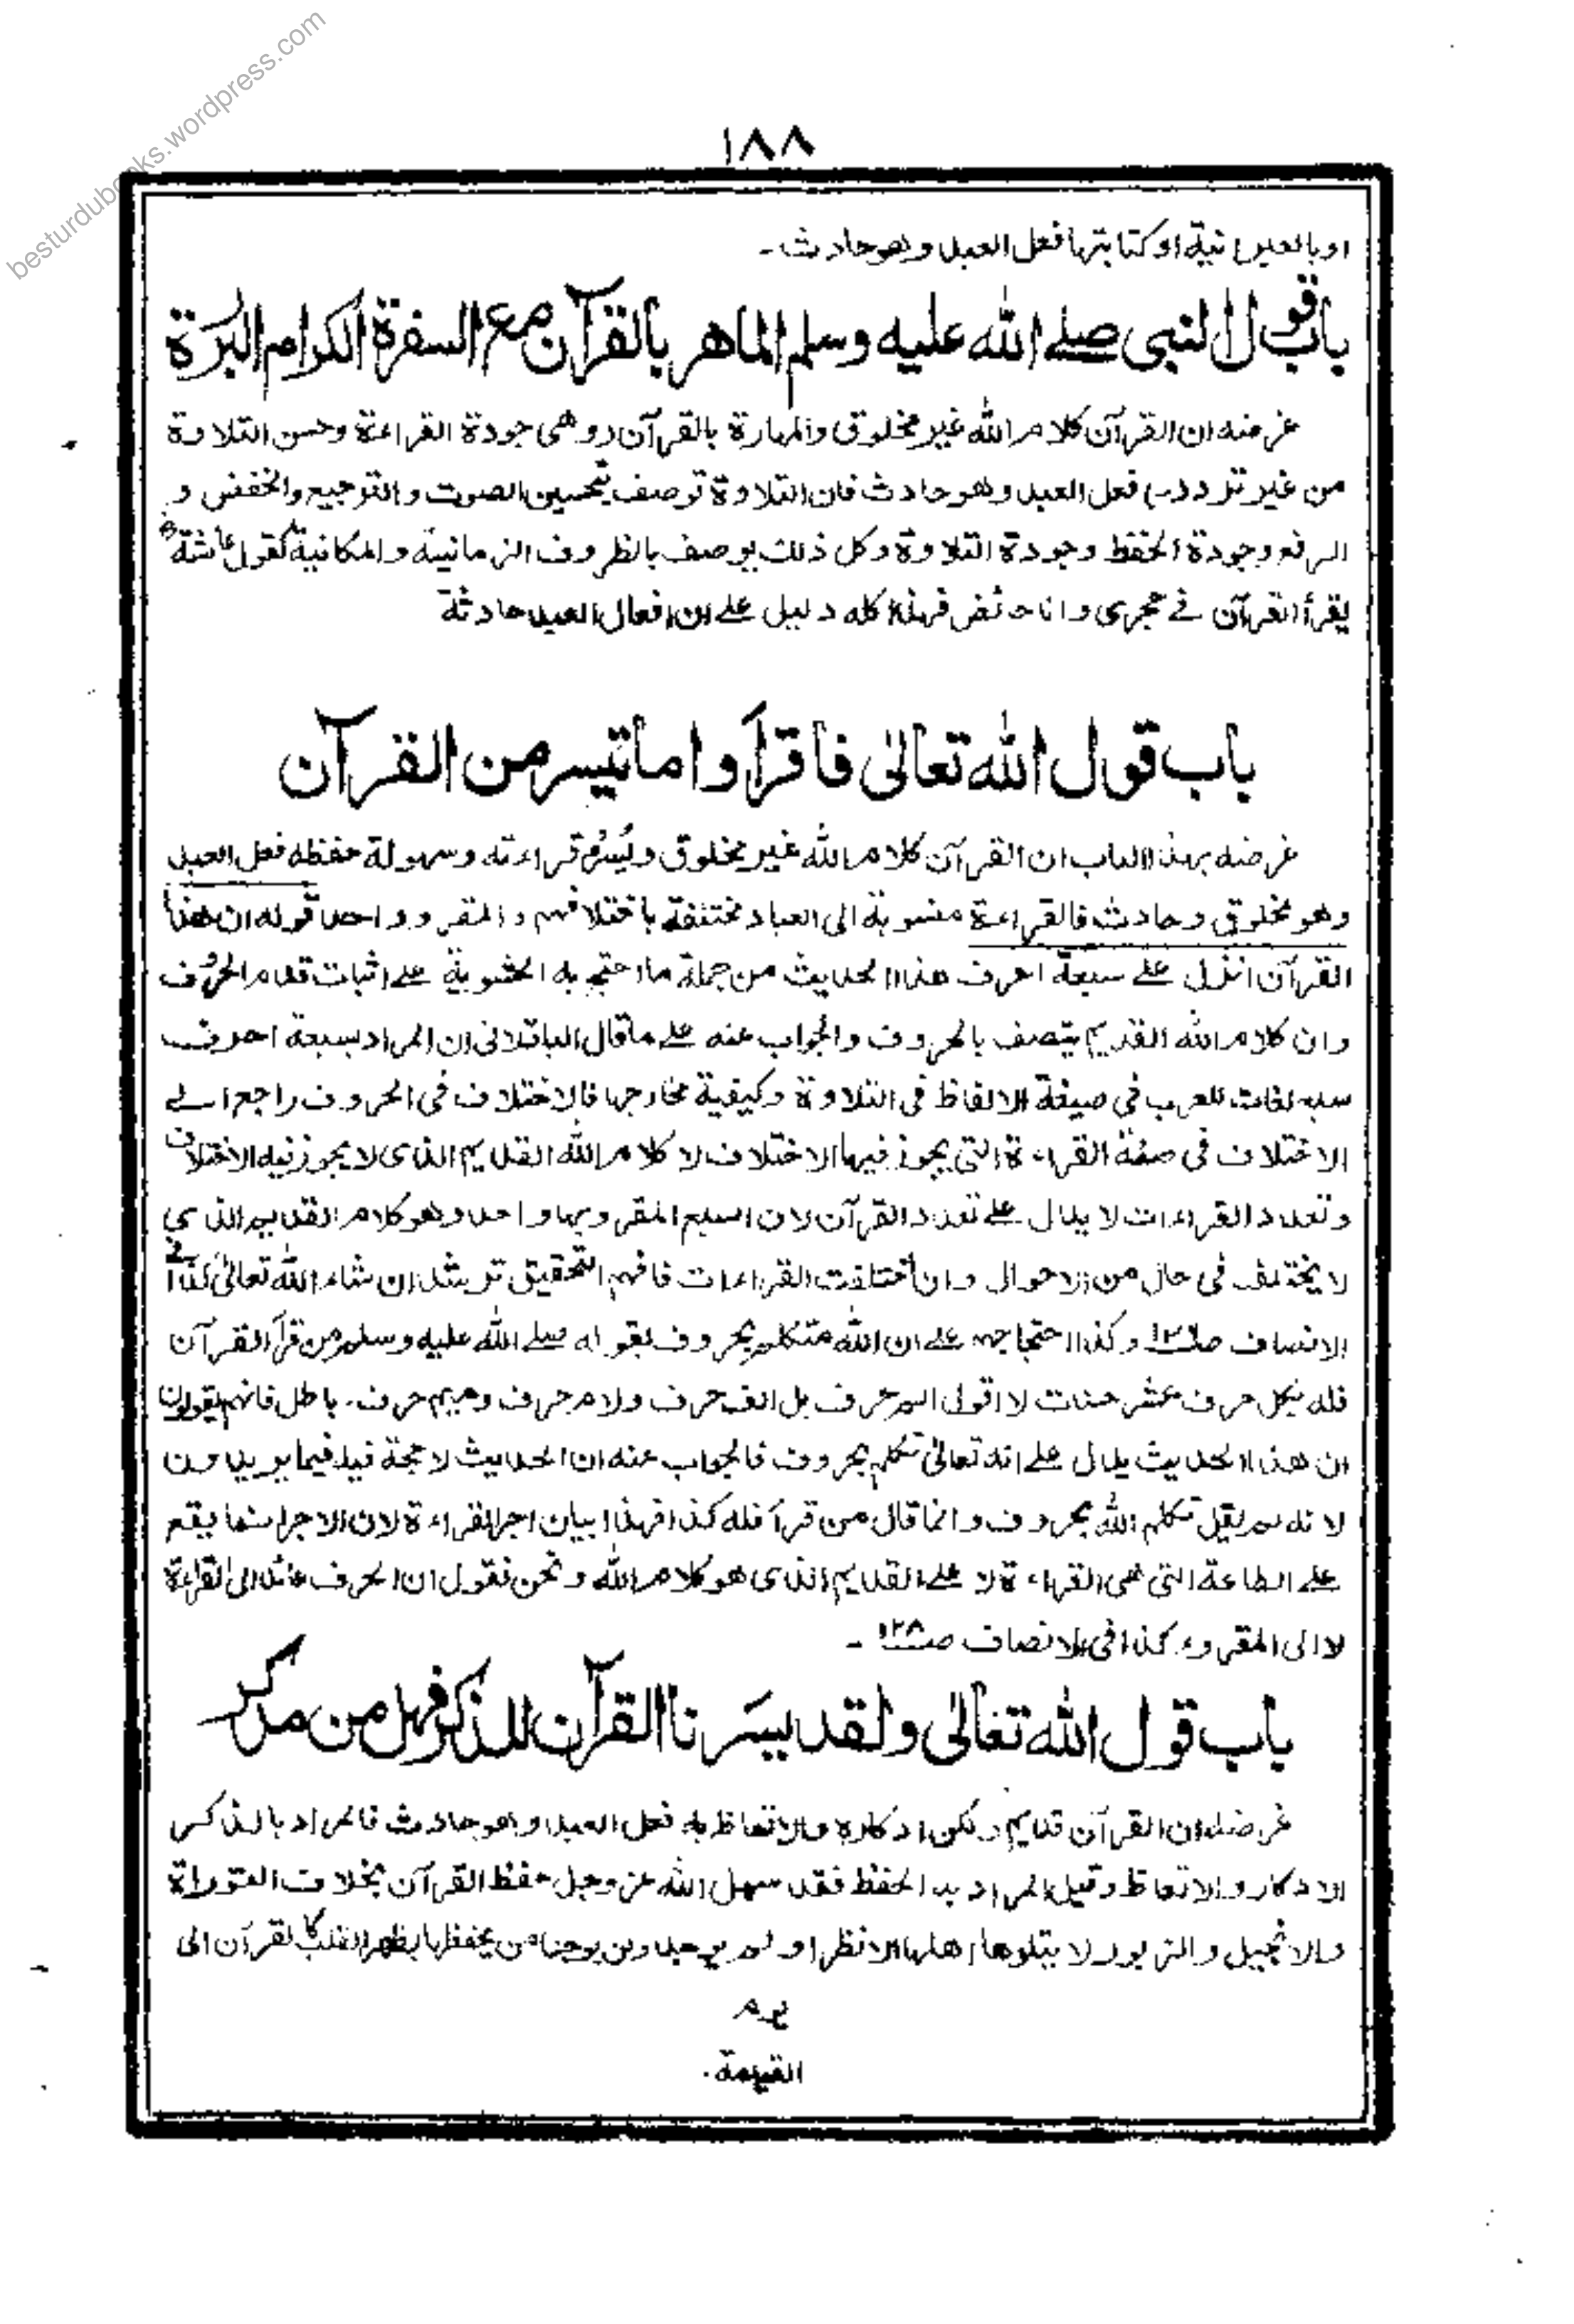 besturdubooks.wordpress.com
١٨٨
او بالعبرانية او كتابتها فعل العبد وهو حادث ـ
باب قول النبي صلے الله عليه وسلم الماهر بالقرآن مع السفرة الكرام البررة
غرضه ان القرآن كلام الله غير مخلوق والمهارة بالقرآن (وهي جودة القراءة وحسن التلاوة
من غير تردد) فعل العبد وهو حادث فان التلاوة توصف بتحسين الصوت والترجيع والخفض و
الرفع وجودة الحفظ وجودة التلاوة وكل ذلك يوصف بالظروف الزمانية والمكانية كقول عائشة رض
يقرأ القرآن فے حجري وانا حائض فهذا كله دليل علے ان افعال العبد حادثة
باب قول الله تعالى فاقرأوا ما تيسر من القرآن
غرضه بهذا الباب ان القرآن كلام الله غير مخلوق ويُسْرُ قراءته وسهولة حفظه فعل العبد
وهو مخلوق وحادث فالقراءة منسوبة الى العباد مختلفة باختلافهم والمقروء واحد قوله ان هذا
القرآن انزل علے سبعة احرف هذا الحديث من جملة ما احتج به الحشوية علے اثبات قدم الحروف
وان كلام الله القديم يتصف بالحروف والجواب عنه علے ما قال الباقلاني ان المراد بسبعة احرف
سبع لغات للعرب في صيغة الالفاظ في التلاوة وكيفية مخارجها فالاختلاف في الحروف راجع الے
الاختلاف في صفة القراءة التي يجوز فيها الاختلاف لا كلام الله القديم الذى لا يجوز فيه الاختلاف
وتعدد القراءات لا يدل علے تعدد القرآن لان السبع المقرو بها واحد وهو كلام القديم الذي
لا يختلف في حال من الاحوال وان اختلفت القراءات فافهم التحقيق ترشد ان شاء الله تعالىٰ كذا فے
الانصاف صـ١٢٦ وكذا احتجاجهم علے ان الله متكلم بحروف بقوله صلے الله عليه وسلم من قرأ القرآن
فله بكل حرف عشر حسنات لا اقول الم حرف بل الف حرف ولام حرف وميم حرف. باطل فانهم يقولون
ان هذا الحديث يدل علے انه تعالىٰ تكلم بحروف فالجواب عنه ان الحديث لا حجة فيه فيما يريدون
لانه لم يقل تكلم الله بحروف وانما قال من قرأ فله كذا فهذا بيان اجر القراءة لان الاجر انما يقع
علے الطاعة التي هي القراءة لا علے القديم الذى هو كلام الله ونحن نقول ان الحرف عائد الى القراءة
لا الى المقروء كذا في الانصاف صـ١٢٨ ـ
باب قول الله تعالى ولقد يسّرنا القرآن للذكر فهل من مدكر
غرضه ان القرآن قديم ولكن ادكاره والاتعاظ به فعل العبد وهو حادث فالمراد بالذكر
الادكار والاتعاظ وقيل المراد به الحفظ فقد سهل الله عز وجل حفظ القرآن بخلاف التوراة
والانجيل والزبور لا يتلوها اهلها الا نظرا ولم يوجد ولن يوجد من يحفظها بظهر القلب كالقرآن الى
يوم
القيمة.